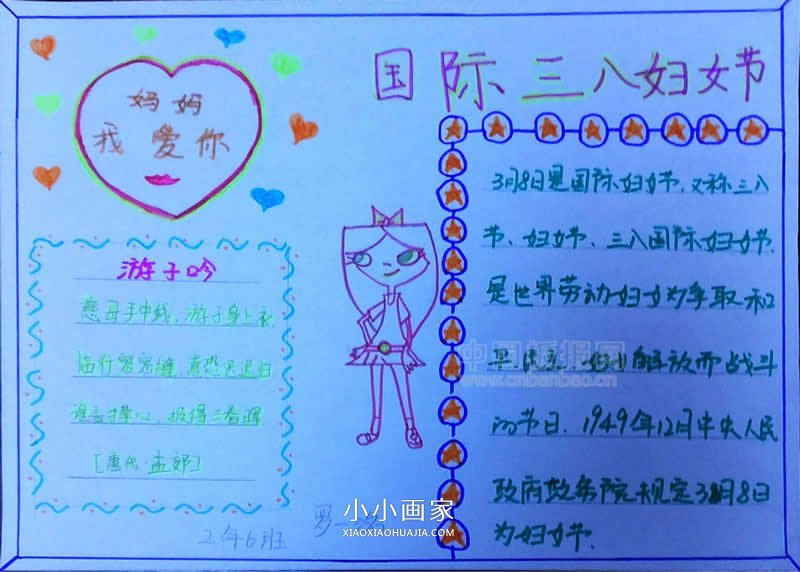 国际三八妇女节
妈妈
我爱你
游子吟
慈母手中线,游子身上衣.
临行密密缝 意恐迟迟归
谁言寸草心,报得三春晖
[唐代 孟郊]
3月8日是国际妇女节.又称三八
节、妇女节、三八国际妇女节.
是世界劳动妇女为争取和
解放而战斗
的节日.1949年12月中央人民
政府政务院规定3月8日
为妇女节.
中国板报网
www.cnbanbao.cn
2年6班
小小画家
XIAOXIAOHUAJIA.COM